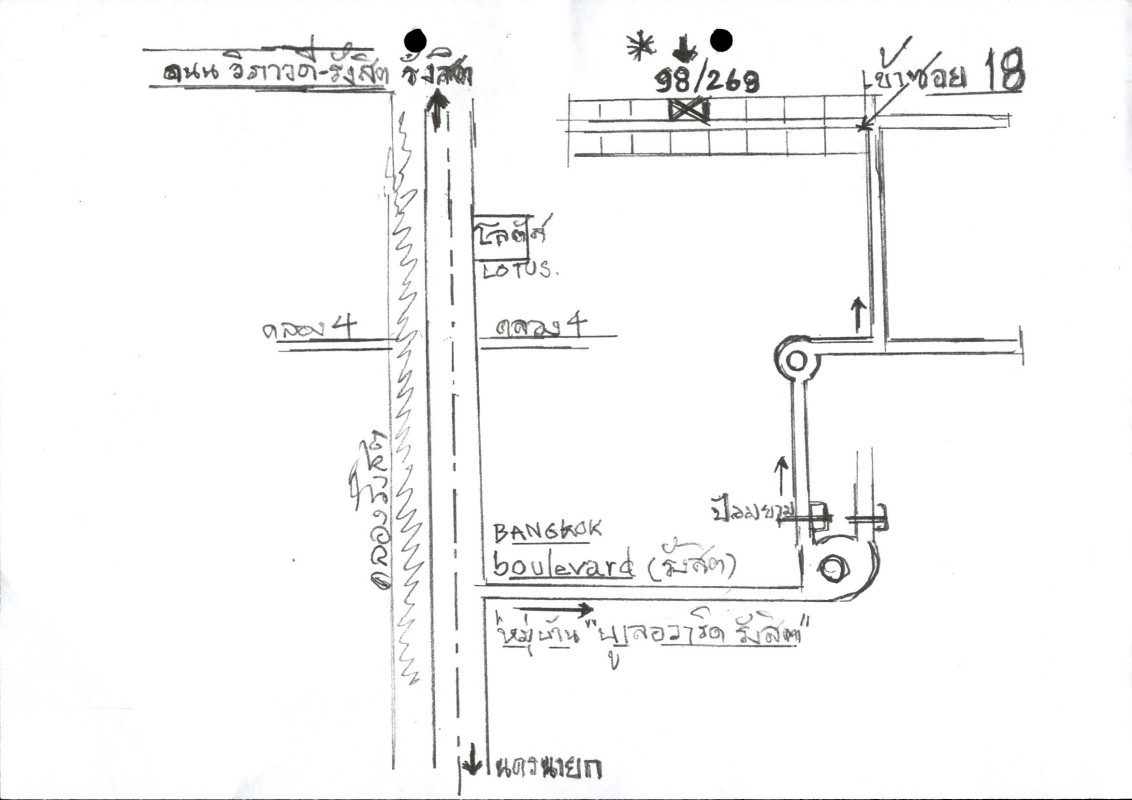 ถนน วิภาวดี-รังสิต
รังสิต
98/269
เข้าซอย 18
โลตัส
LOTUS.
คลอง 4
คลอง 4
คลองรังสิต
ป้อมยาม
BANGKOK
boulevard (รังสิต)
"หมู่บ้าน "บูเลอวาร์ด รังสิต"
นครนายก